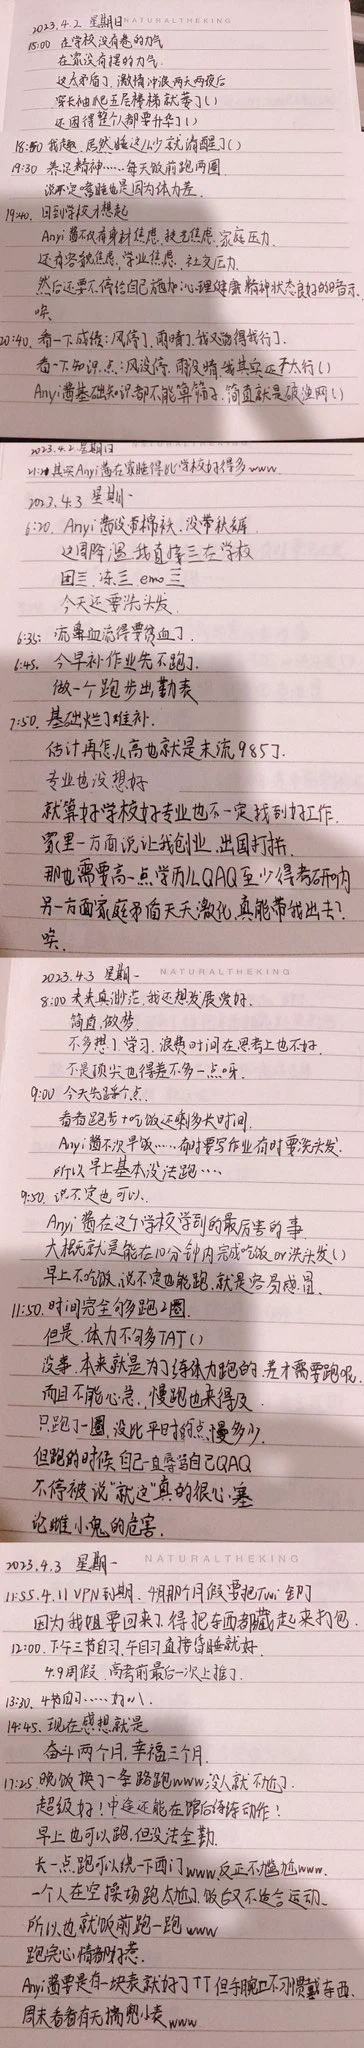 2023.4.2 星期日
NATURALTHEKING
18:00 在学校没有卷的力气
在家没有摆的力气
这太矛盾了，激情冲浪两天两夜后
穿长袖爬五层楼梯就萎了()
还困得整个人都要升华了()
18:50 我超，居然睡这么少就清醒了()
19:30 养足精神……每天饭前跑两圈
说不定嗜睡也是因为体力差.
19:40. 回到学校才想起
Anyi酱不仅有身材焦虑，社死焦虑，家庭压力
还有容貌焦虑，学业焦虑，社交压力.
然后还要不停给自己施加心理健康精神状态良好的暗示.
唉.
20:40. 看一下成绩：风停了，雨晴了，我又觉得我行了.
看一下知识点：风没停，雨没晴，我其实还不太行()
Anyi酱基础知识都不能算筛子，简直就是破渔网()
2023.4.2 星期日
21:20 其实Anyi酱在家睡得比学校好得多www
2023.4.3 星期一
6:20. Anyi酱没带棉袄. 没带秋裤
这周降温我直接三在学校
困三. 冻三 emo三
今天还要洗头发.
6:35: 流鼻血流得要贫血了.
6:45. 今早补作业先不跑了.
做一个跑步出勤表
7:50. 基础烂了难补.
估计再怎么高也就是末流985了.
专业也没想好
就算好学校好专业也不一定找到好工作.
家里一方面说让我创业，出国打拼.
那也需要高一点学历么QAQ至少得考研吧
另一方面家庭矛盾天天激化，真能带我出去？
唉.
2023.4.3 星期一
NATURALTHEKING
8:00 未来真渺茫，我还想发展爱好.
简直做梦.
不多想了学习，浪费时间在思考上也不好.
不是顶尖也得差不多一点呀.
9:00 今天先踩个点.
看看跑步+吃饭还剩多长时间.
Anyi酱不次早饭……有时要写作业有时要洗头发.
所以早上基本没法跑……
9:50. 说不定也可以.
Anyi酱在这个学校学到的最厉害的事
大概就是能在10分钟内完成吃饭or洗头发()
早上不吃饭，说不定也能跑，就是容易感冒.
11:50. 时间完全够跑2圈.
但是，体力不够多TAT()
没事，本来就是为了练体力跑的，差才需要跑呢.
而且不能心急，慢跑也来得及
只跑了一圈，没比平时的点慢多少.
但跑的时候自己一直辱骂自己QAQ
不停被说"就这"真的很心塞
论雌小鬼的危害.
2023.4.3 星期一
NATURALTHEKING
11:55. 4.11 VPN到期，4月那个月假要把Twi
因为我姐要回来了，得把东西都藏起来打包.
12:00. 下午三节自习，午自习直接待睡就好.
4.9周假，高考前最后一次上推了.
13:30. 4节自习……好八.
14:45. 现在感想就是
奋斗两个月，幸福三个月.
17:25 晚饭换了一条路跑www没人就不尬了.
超级好！中途还能在馆后待练动作！
早上也可以跑，但没法全勤.
长一点跑可以绕一下西门www反正不尴尬www.
一个人在空操场跑太尬了，饭后又不适合运动.
所以也就饭前跑一跑www
跑完心情都好惹.
Anyi酱要是有一块表就好了TT 但手腕上不习惯戴东西.
周末看看有无揣兜小表www